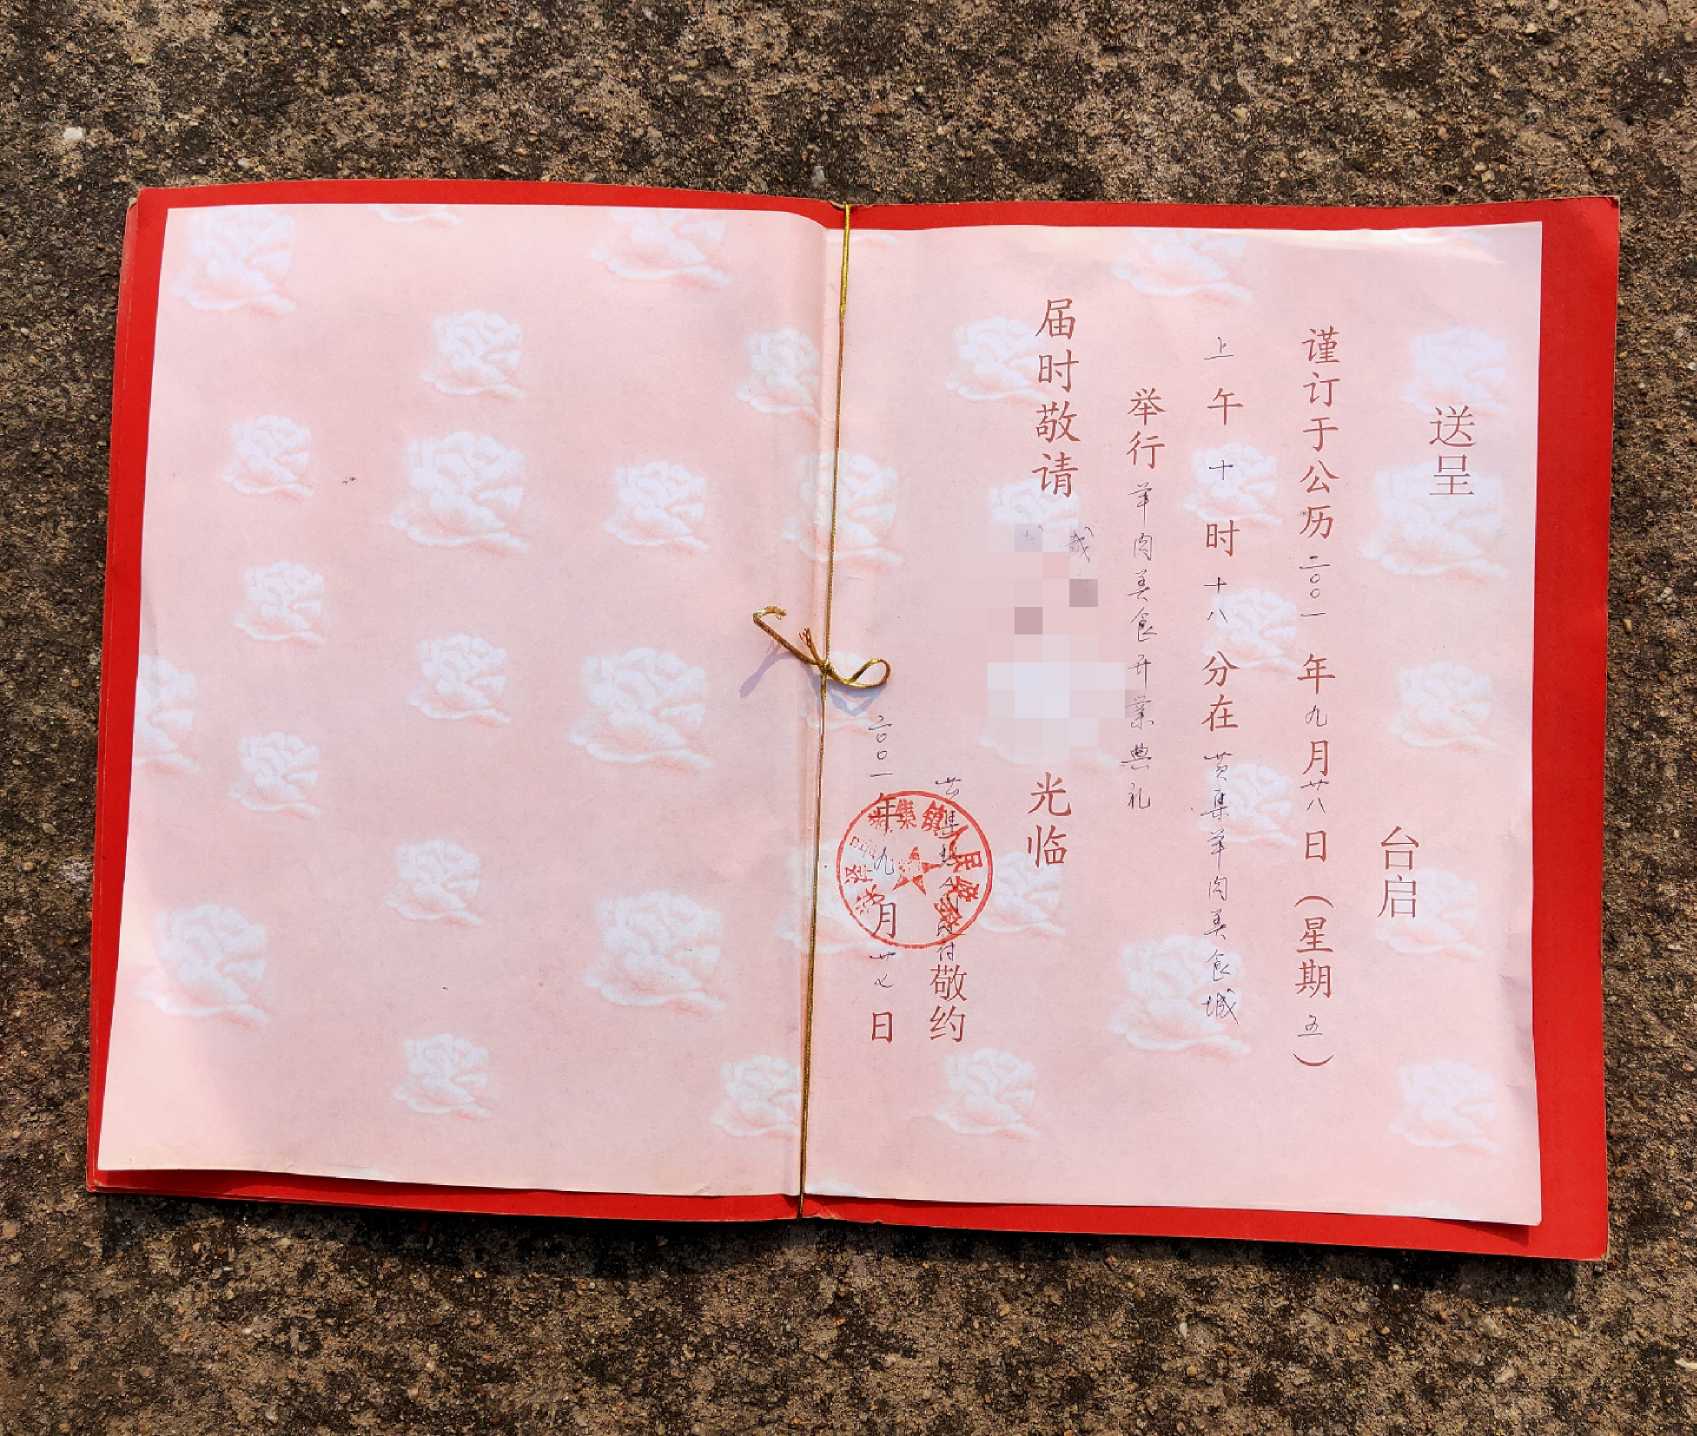 送呈
台启
谨订于公历二〇〇一年九月廿八日(星期五)
上午十时十八分在黄集羊肉美食城
举行羊肉美食开业典礼
届时敬请
光临
黄集镇人民政府敬约
二〇〇一年九月廿七日
集镇人民政府